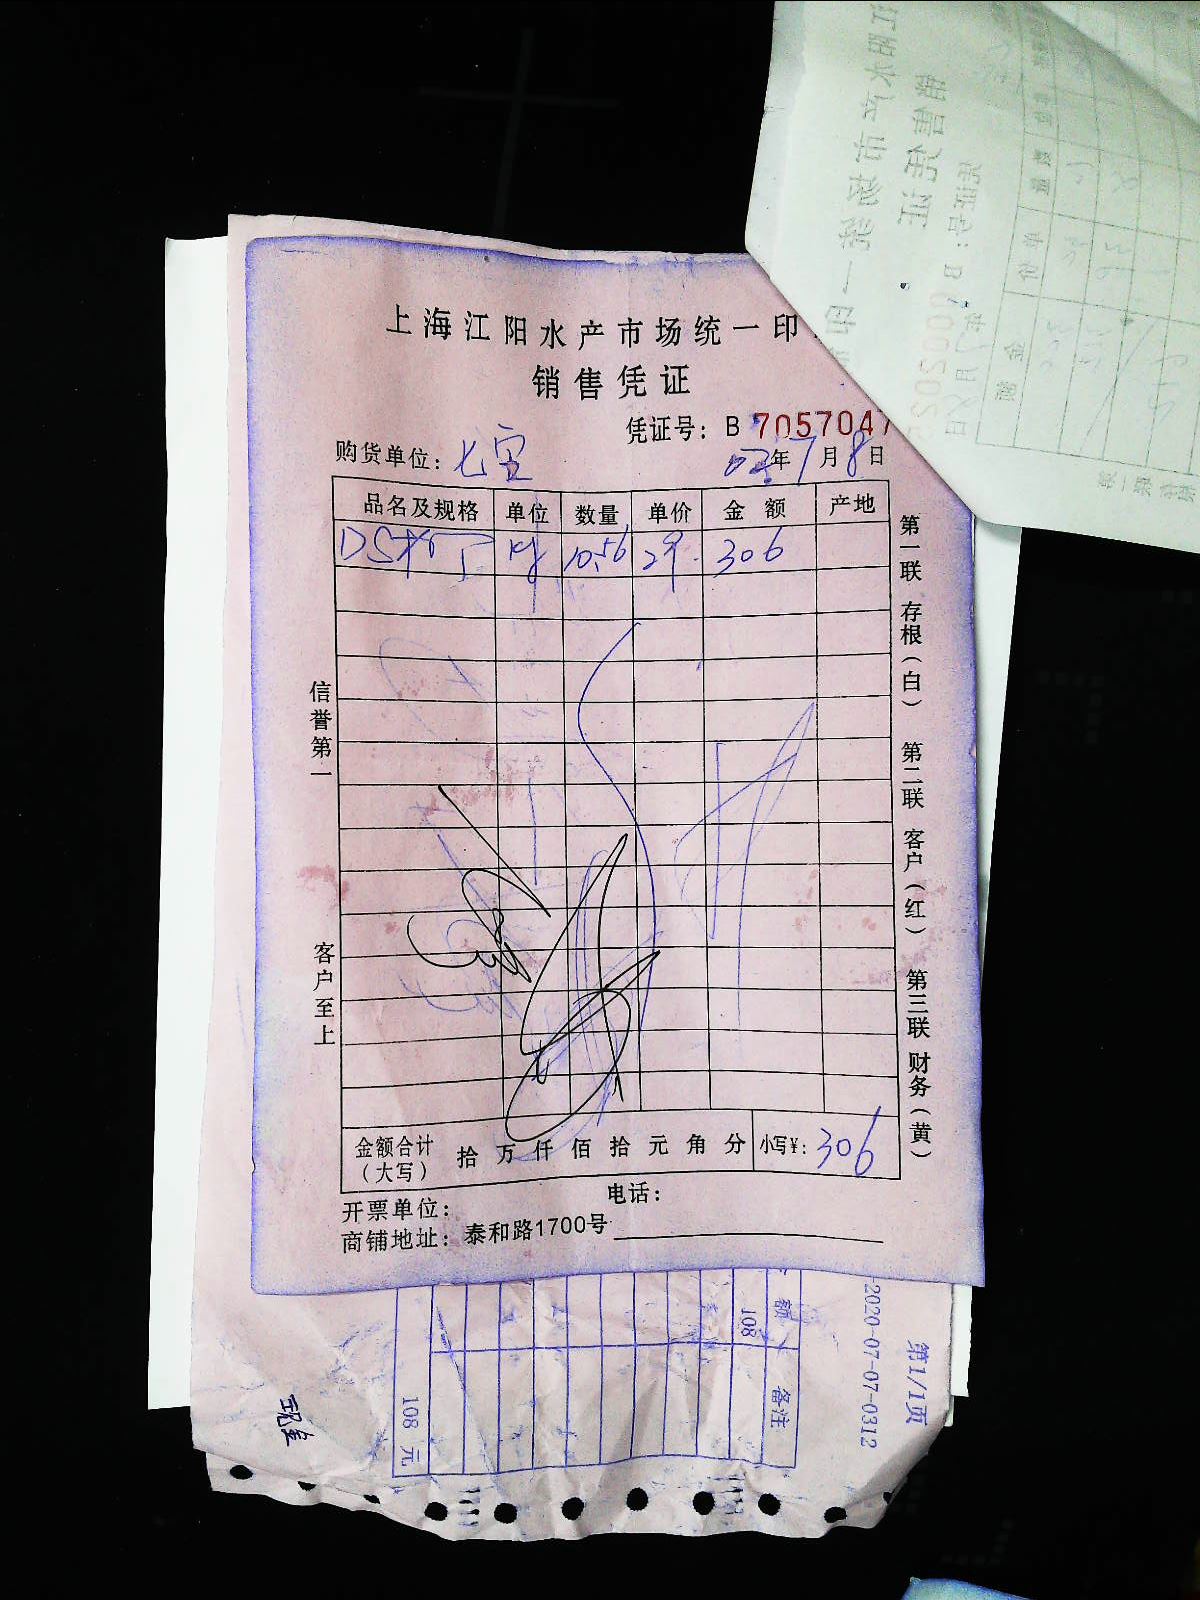 上海江阳水产市场统一印
销售凭证
凭证号：B 7057047
购货单位：七宝 年7月8日
品名及规格 单位 数量 单价 金额 产地
kg 10.56 29 306
信誉第一
客户至上
第一联 存根（白） 第二联 客户（红） 第三联 财务（黄）
金额合计（大写） 拾 万 仟 佰 拾 元 角 分 小写¥：306
开票单位： 电话：
商铺地址：泰和路1700号
第1/1页
-2020-07-07-0312
额 备注
108
108 元
现金
江阳水产市场统一印
销售凭证
凭证号：B
数量
单价
金额